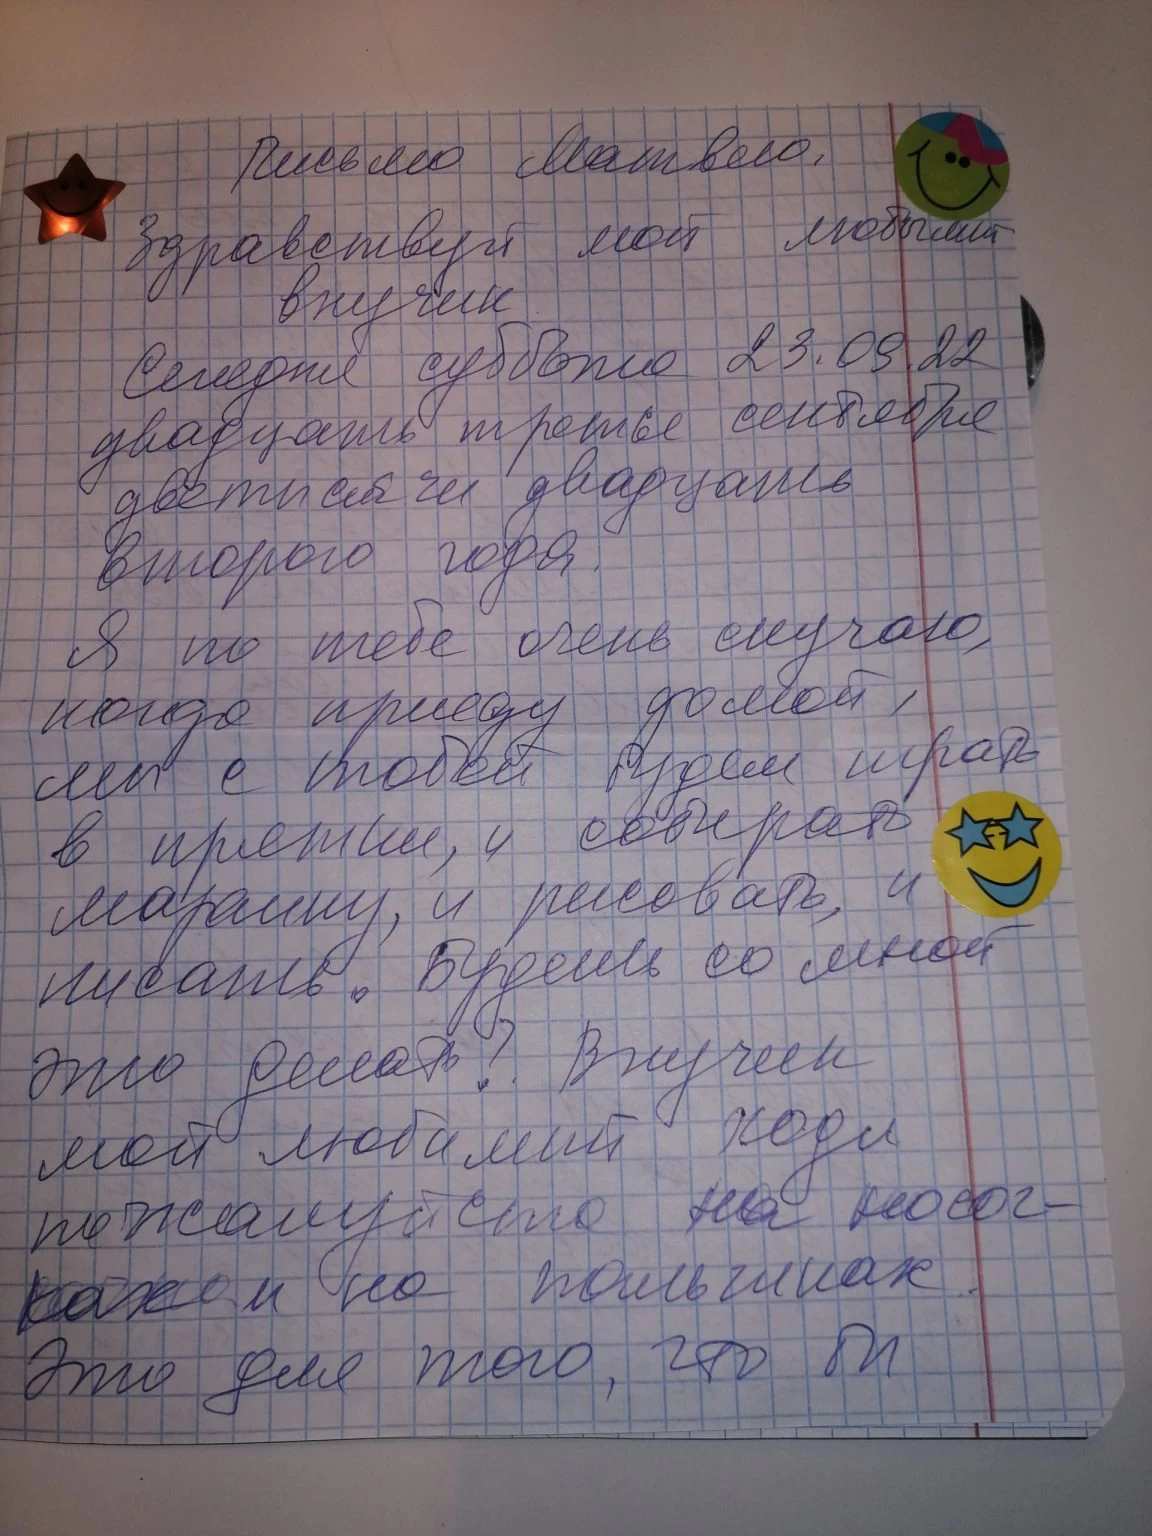 Письмо Матвею.
Здравствуй мой любымый
внучик
Сегодня суббота 23.09.22
двадцать третье сентября
дветысячи двадцать
второго года.
Я по тебе очень скучаю,
когда приеду домой,
мы с тобой будем играть
в прятки, и собирать
машину, и рисовать, и
писать. Будешь со мной
это делать? Внучик
мой любимый ходи
пожалуйста на носоч-
ках и на пальчиках.
Это для того, что бы